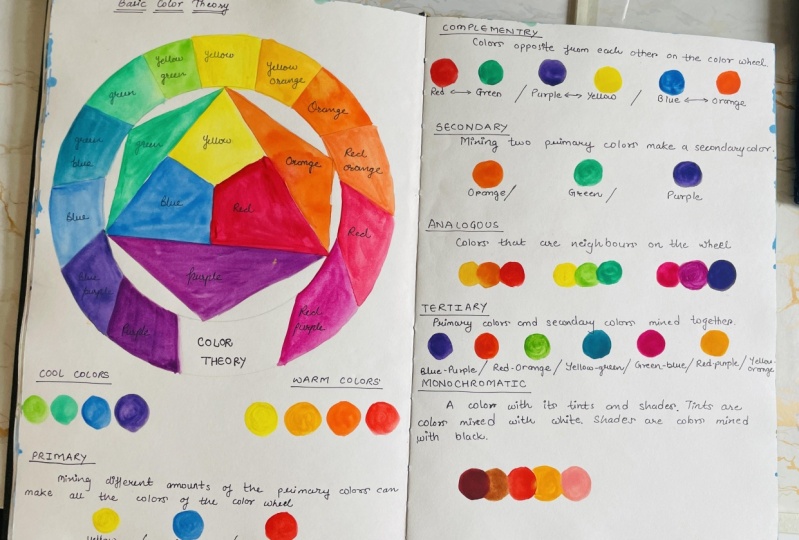 Basic Color Theory
Yellow
Yellow
green
Yellow
Orange
green
Orange
green
blue
Red
orange
Blue
Red
Blue
purple
Purple
Red
purple
Yellow
green
Orange
Blue
Red
Purple
COLOR
THEORY
COOL COLORS
WARM COLORS
PRIMARY
Mixing different amounts of the primary colors can
make all the colors of the color wheel
Yellow
COMPLEMENTRY
Colors opposite from each other on the color wheel.
Red ↔ Green / Purple ↔ Yellow / Blue ↔ Orange
SECONDARY
Mixing two primary colors make a secondary color.
Orange / Green / Purple
ANALOGOUS
Colors that are neighbours on the wheel
TERTIARY
Primary colors and secondary colors mixed together.
Blue-Purple / Red-Orange / Yellow-green / Green-blue / Red-purple / Yellow-
orange
MONOCHROMATIC
A color with its tints and shades. Tints are
colors mixed with white. Shades are colors mixed
with black.